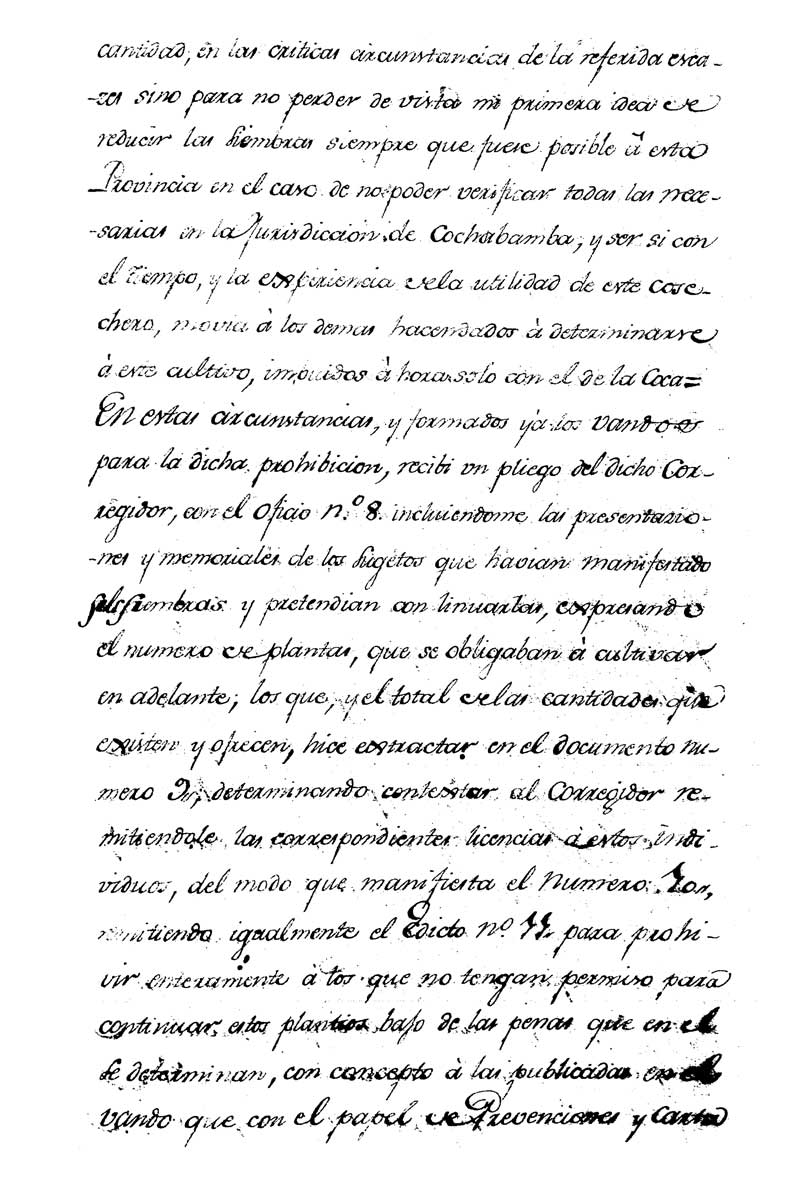 cantidad, en las criticas circunstancias de la referida esca-
-zes sino para no perder de vista mi primera idea de
reducir las siembras siempre que fuese posible â esta
Provincia en el caso de no poder verificar todas las nece-
-sarias en la Jurisdiccion de Cochabamba; y ser si con
el tiempo, y la experiencia dela utilidad de este cose-
chero, movia à los demas hacendados à determinarse
à este cultivo, imbuidos à hora solo con el de la Coca=
En estas circunstancias, y formados ya los vandos
para la dicha prohibicion, recibi vn pliego del dicho Cor-
regidor, con el oficio n.º 8. incluiendome las presentazio-
-nes y memoriales de los Sugetos que havian manifestado
sus siembras y pretendian continuarlas, expresando
el numero de plantas, que se obligaban à cultivar
en adelante; los que, y el total delas cantidades que
existen y ofrecen, hice extractar en el documento nu-
mero 9, determinando contextar al Corregidor re-
mitiendole las correspondientes licencias à estos indi-
viduos, del modo que manifiesta el Numero 10,,
remitiendo igualmente el Edicto nº 11. para prohi-
vir enteramente à los que no tengan permiso para
continuar estos plantios bajo de las penas que en el
se determinan, con concepto à las publicadas en el
vando que con el papel de Prevenciones y Carta